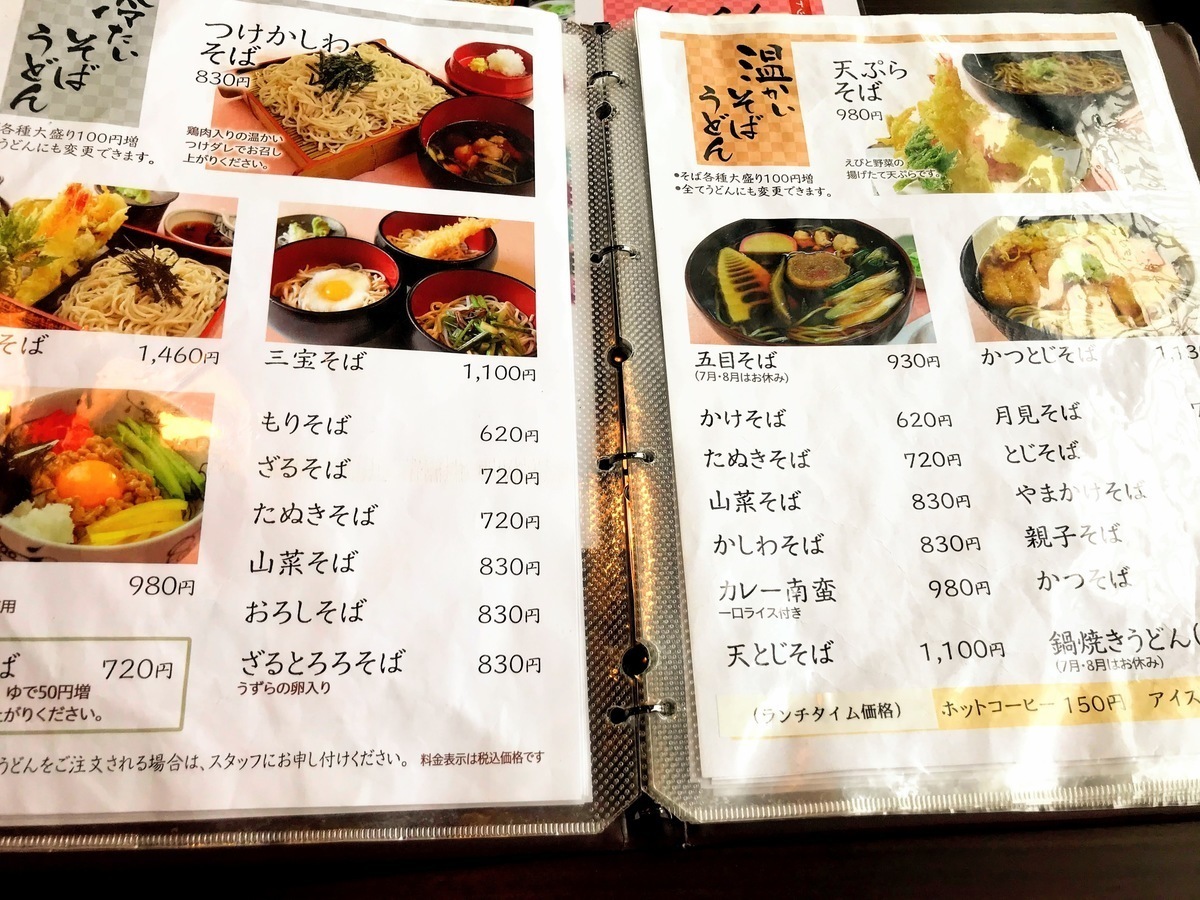 冷たい
そば
うどん
各種大盛り100円増
てうどんにも変更できます。
つけかしわ
そば
830円
鶏肉入りの温かい
つけダレでお召し
上がりください。
そば 1,460円
三宝そば 1,100円
980円
用
もりそば 620円
ざるそば 720円
たぬきそば 720円
山菜そば 830円
おろしそば 830円
ざるとろろそば 830円
うずらの卵入り
ば 720円
ゆで50円増
上がりください。
うどんをご注文される場合は、スタッフにお申し付けください。 料金表示は税込価格です
温かい
そば
うどん
●そば各種大盛り100円増
●全てうどんにも変更できます。
天ぷら
そば
980円
えびと野菜の
揚げたて天ぷらです。
五目そば 930円
(7月・8月はお休み)
かつとじそば
かけそば 620円
たぬきそば 720円
山菜そば 830円
かしわそば 830円
カレー南蛮 980円
一口ライス付き
天とじそば 1,100円
月見そば
とじそば
やまかけそば
親子そば
かつそば
鍋焼きうどん(
(7月・8月はお休み)
(ランチタイム価格) ホットコーヒー 150円 アイス